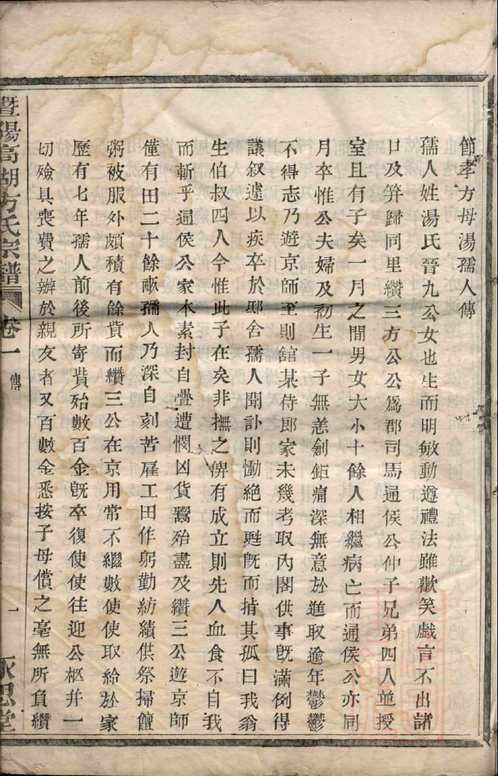 節孝方母湯孺人傳
孺人姓湯氏晉九公女也生而明敏動遵禮法雖歡笑戲言不出諸
口及笄歸同里纘三方公公為郡司馬通侯公仲子兄弟四人並授
室且有子矣一月之間男女大小十餘人相繼病亡而通侯公亦同
月卒惟公夫婦及初生一子無恙創鉅痛深無意於進取逾年鬱鬱
不得志乃遊京師至則舘某侍郎家未幾考取內閣供事旣滿例得
議叙遽以疾卒於邸舍孺人聞訃則慟絶而甦旣而拊其孤曰我翁
生伯叔四人今惟此子在矣非撫之俾有成立則先人血食不自我
而斬乎通侯公家本素封自疊遭憫凶貨鬻殆盡及纘三公遊京師
僅有田二十餘畝孺人乃深自刻苦雇工田作躬勤紡績供祭掃饘
粥被服外頗積有餘貲而纘三公在京用常不繼數使使取給於家
歷有七年孺人前後所寄貲殆數百金旣卒復使使往迎公柩并一
切殮具喪費之辦於親友者又百數金悉按子母償之毫無所負纘
暨陽高湖方氏宗譜
卷一
傳
一
永思堂